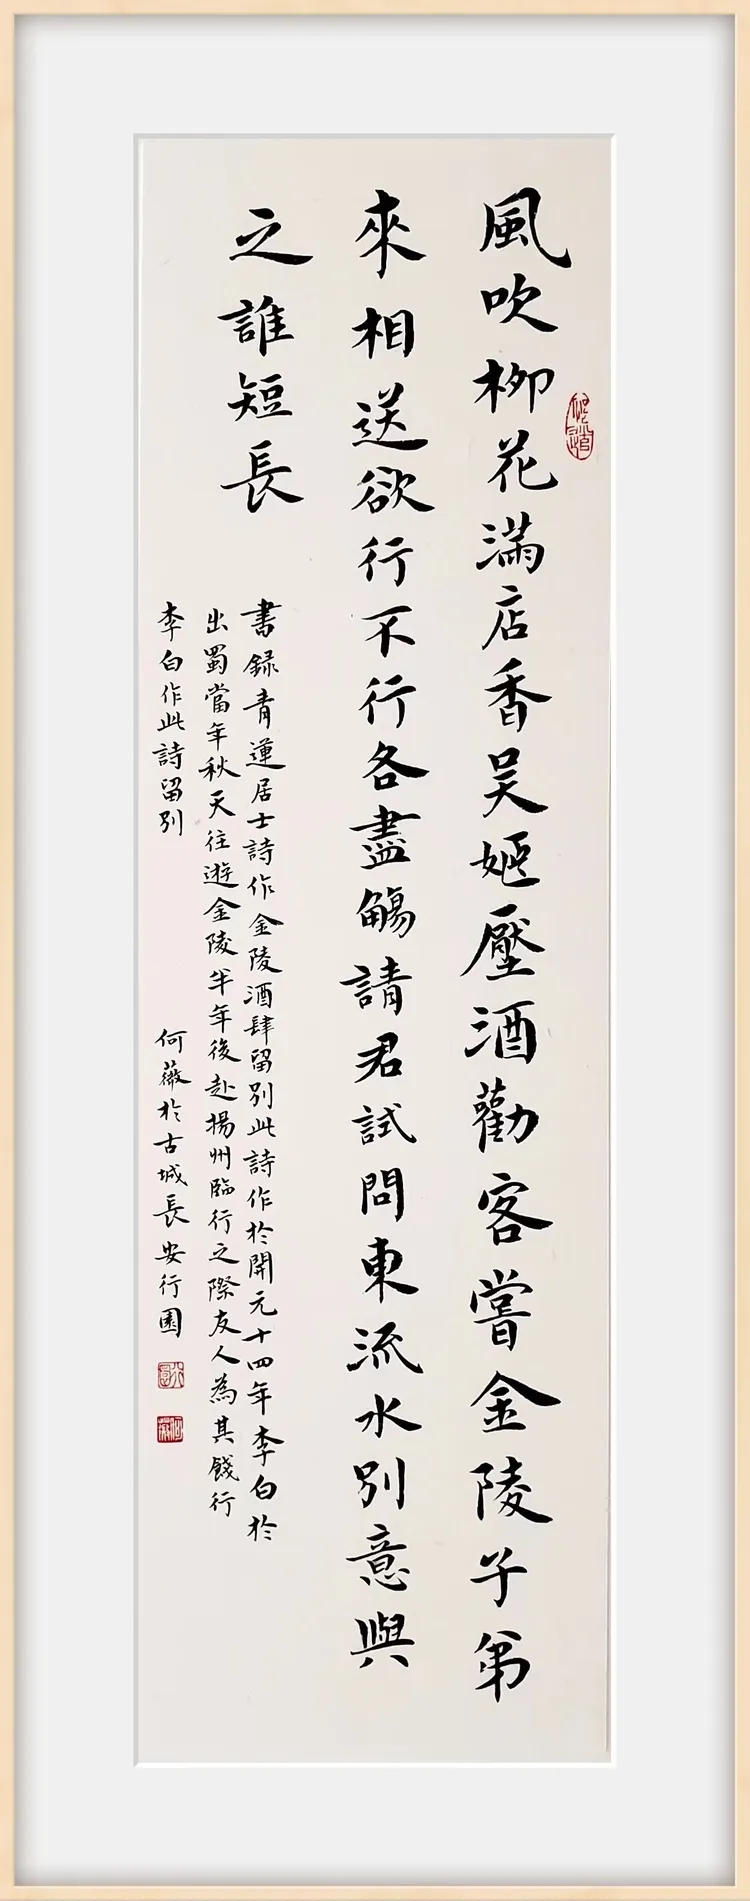 風吹柳花滿店香吳姬壓酒勸客嘗金陵子弟
來相送欲行不行各盡觴請君試問東流水別意與
之誰短長
書録青蓮居士詩作金陵酒肆留別此詩作於開元十四年李白於
出蜀當年秋天往遊金陵半年後赴揚州臨行之際友人為其餞行
李白作此詩留別
何薇於古城長安行園